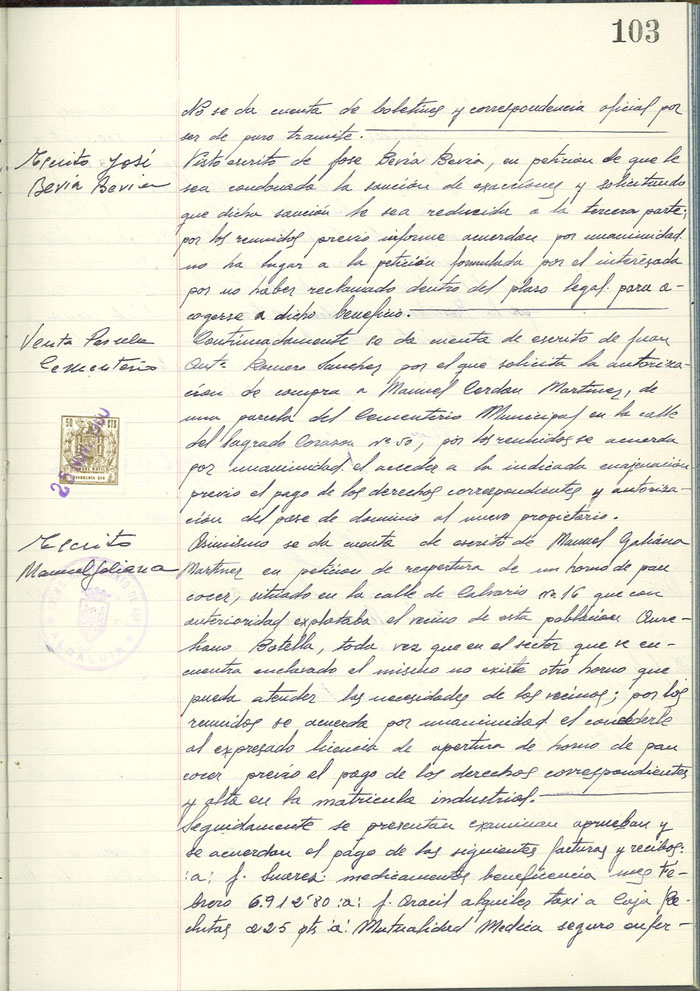 103
No se da cuenta de boletines y correspondencia oficial por
ser de puro tramite.
Escrito José
Bevia Bevia
Visto escrito de Jose Bevia Bevia, en peticion de que le
sea condonada la sancion de exacciones y solicitando
que dicha sancion le sea reducida a la tercera parte;
por los reunidos previo informe acuerdan por unanimidad
no ha lugar a la peticion formulada por el interesado
por no haber reclamado dentro del plaso legal para a-
cogerse a dicho beneficio.
Venta Parcela
Cementerio
Continuadamente se da cuenta de escrito de Juan
Antº Romero Sanchez por el que solicita la autoriza-
cion de compra a Manuel Cerdan Martinez, de
una parcela del Cementerio Municipal en la calle
del Sagrado Corazon nº 50, por los reunidos se acuerda
por unanimidad el acceder a la indicada enajenacion
previo el pago de los derechos correspondientes y autoriza-
cion del pase de dominio al nuevo propietario.
50 CTS
Escrito
Manuel Galiana
ALCALDIA
Asimismo se da cuenta de escrito de Manuel Galiana
Martinez en peticion de reapertura de un horno de pan
cocer, situado en la calle de Calvario nº 16 que con
anterioridad explotaba el vecino de esta poblacion Aure-
liano Botella, toda vez que en el sector que se en-
cuentra enclavado el mismo no existe otro horno que
pueda atender las necesidades de los vecinos; por los
reunidos se acuerda por unanimidad el concederle
al expresado licencia de apertura de horno de pan
cocer previo el pago de los derechos correspondientes
y alta en la matricula industrial.
Seguidamente se presentan examinan aprueban y
se acuerdan el pago de las siguientes facturas y recibos:
:a: J. Suarez medicamentos beneficencia mes Fe-
brero 6.912'80 :a: J. Oracil alquiler taxi a Caja Re-
clutas 225 pts :a: Mutualidad Medica seguro enfer-